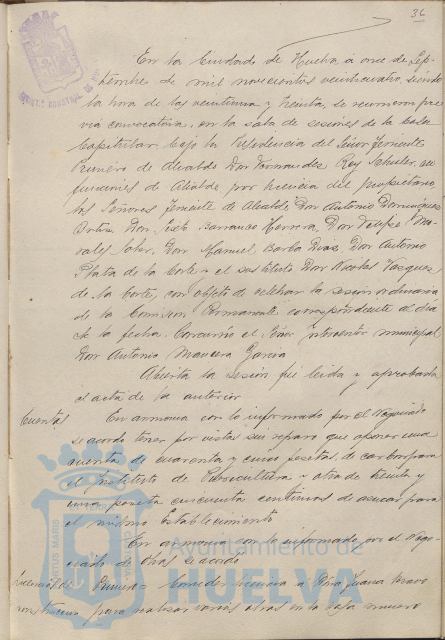 36
En la Ciudad de Huelva, a once de Sep-
tiembre de mil novecientos veinticuatro, siendo
la hora de las veintiuna y treinta, se reunieron pre-
via convocatoria, en la sala de sesiones de la Casa
Capitular bajo la Presidencia del Señor Teniente
Primero de Alcalde Don Fernando Rey Schuler, en
funciones de Alcalde por licencia del propietario
los Señores Teniente de Alcalde, Don Antonio Dominguez
Don Barranco Herrera, Don Felipe Mo-
rales Don Manuel Barba Diaz, Don Antonio
Plata de la Corte y el sustituto Don Nicolas Vazquez
de la Corte, con objeto de celebrar la sesión ordinaria
de la Comision Permanente correspondiente al dia
de la fecha. Concurrio el Señor Interventor municipal
Don Antonio Mancera Garcia
Abierta la sesión fué leida y aprobada
el acta de la anterior
Cuentas
En armonia con lo informado por el Negociado
se acordo tener por vistas sin reparo que oponer una
cuenta de cuarenta y cinco pesetas de carbon para
el Instituto de Puericultura y otra de treinta y
una peseta cincuenta centimos de azucar para
el mismo Establecimiento
En armonia con lo informado por el Nego-
ciado de Obras se acordo
Licencias de
construccion
Primero = Conceder licencia a Doña Juana Bravo
para realizar varias obras en la casa numero
Ayuntamiento de
HUELVA